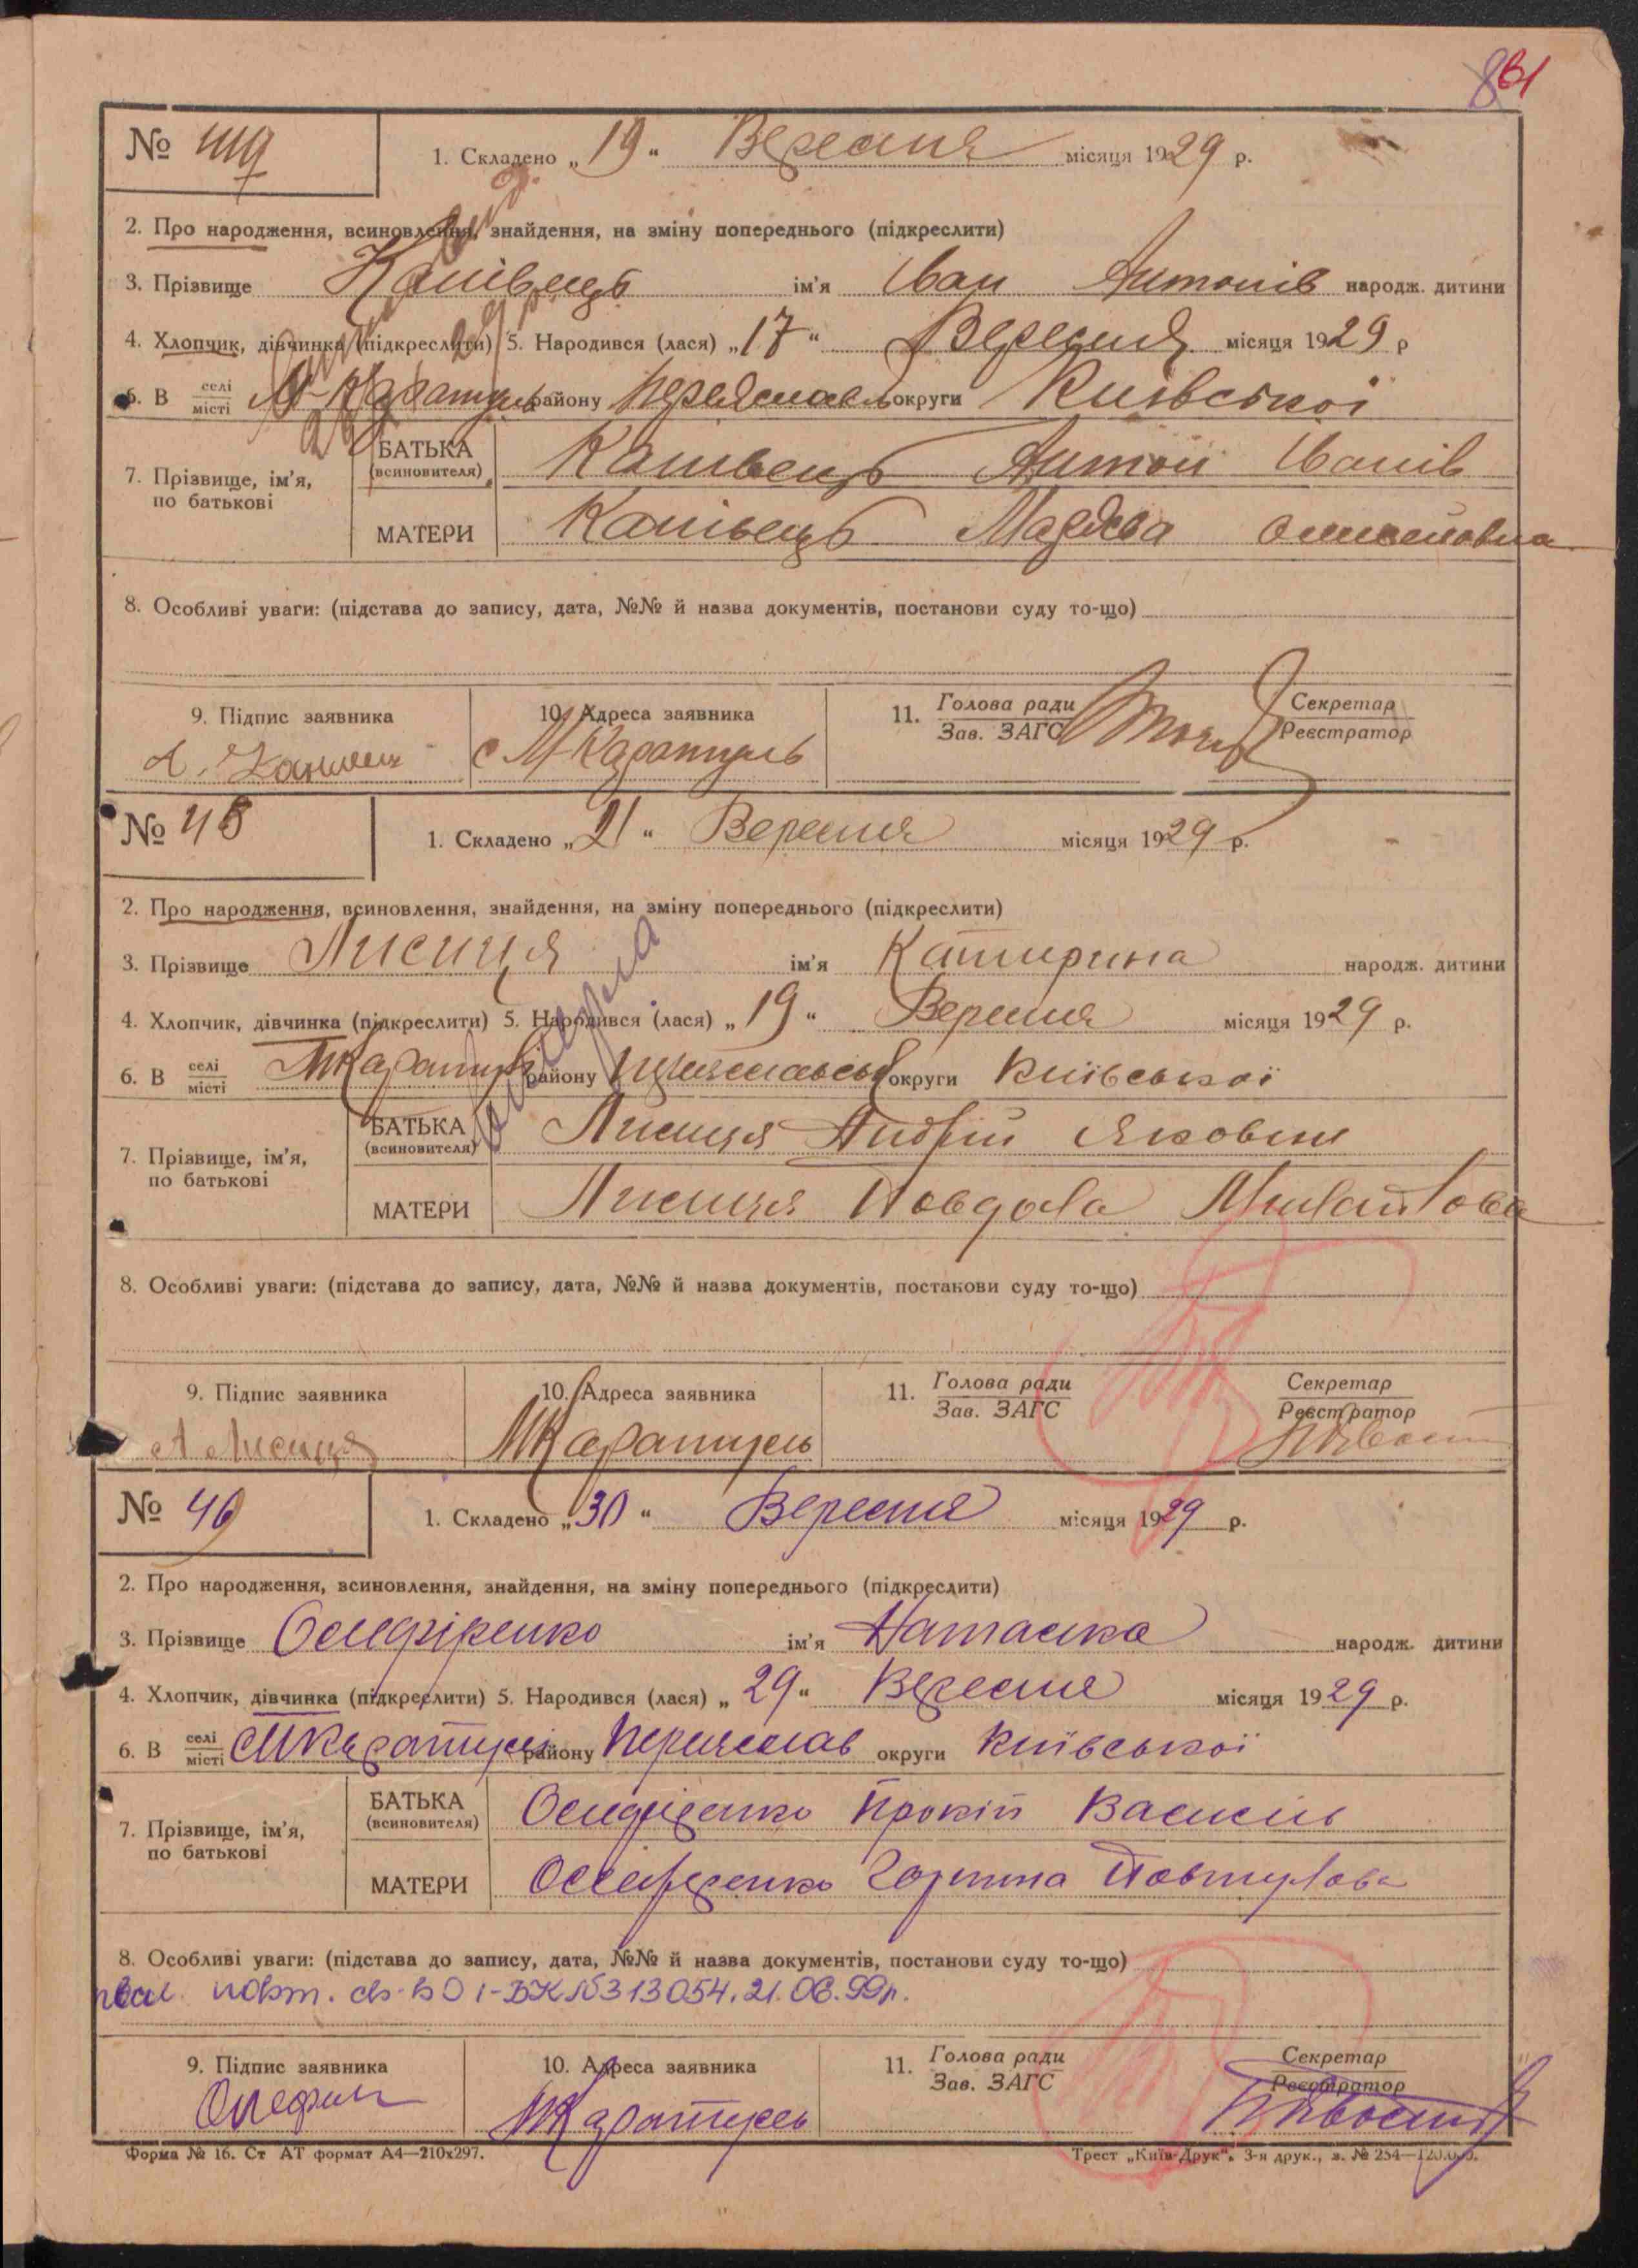 861
№ 47
1. Складено „19“ Вересня місяця 1929 р.
2. Про народження, всиновлення, знайдення, на зміну попереднього (підкреслити)
3. Прізвище Канівець ім'я Іван Антонів народж. дитини
4. Хлопчик, дівчинка (підкреслити) 5. Народився (лася) „17“ Вересня місяця 1929 р
6. В селі місті М-Каратуль району Переяслав округи Київської
7. Прізвище, ім'я, по батькові
БАТЬКА (всиновителя) Канівець Антон Іванів
МАТЕРИ Канівець
8. Особливі уваги: (підстава до запису, дата, №№ й назва документів, постанови суду то-що)
9. Підпис заявника 10. Адреса заявника 11. Голова ради Зав. ЗАГС Секретар Реєстратор
с М-Каратуль
№ 48
1. Складено „21“ Вересня місяця 1929 р.
2. Про народження, всиновлення, знайдення, на зміну попереднього (підкреслити)
3. Прізвище Лисиця ім'я Катирина народж. дитини
4. Хлопчик, дівчинка (підкреслити) 5. Народився (лася) „19“ Вересня місяця 1929 р.
6. В селі місті МКаратулі району округи Київської
7. Прізвище, ім'я, по батькові
БАТЬКА (всиновителя) Лисиця Андрій Яковен
МАТЕРИ Лисиця
8. Особливі уваги: (підстава до запису, дата, №№ й назва документів, постанови суду то-що)
9. Підпис заявника 10. Адреса заявника 11. Голова ради Зав. ЗАГС Секретар Реєстратор
А Лисиця МКаратуль
№ 49
1. Складено „30“ Вересня місяця 1929 р.
2. Про народження, всиновлення, знайдення, на зміну попереднього (підкреслити)
3. Прізвище ім'я Наталка народж. дитини
4. Хлопчик, дівчинка (підкреслити) 5. Народився (лася) „29“ Вересня місяця 1929 р.
6. В селі місті МКаратулі району Переяслав округи Київської
7. Прізвище, ім'я, по батькові
БАТЬКА (всиновителя) Прокіп Василів
МАТЕРИ Горпина
8. Особливі уваги: (підстава до запису, дата, №№ й назва документів, постанови суду то-що)
повт. св-во 1-БК №313054. 21.06.99р.
9. Підпис заявника 10. Адреса заявника 11. Голова ради Зав. ЗАГС Секретар Реєстратор
МКаратуль
Форма № 16. Ст АТ формат А4—210х297. Трест „Київ-Друк“. 3-я друк., з. № 254—